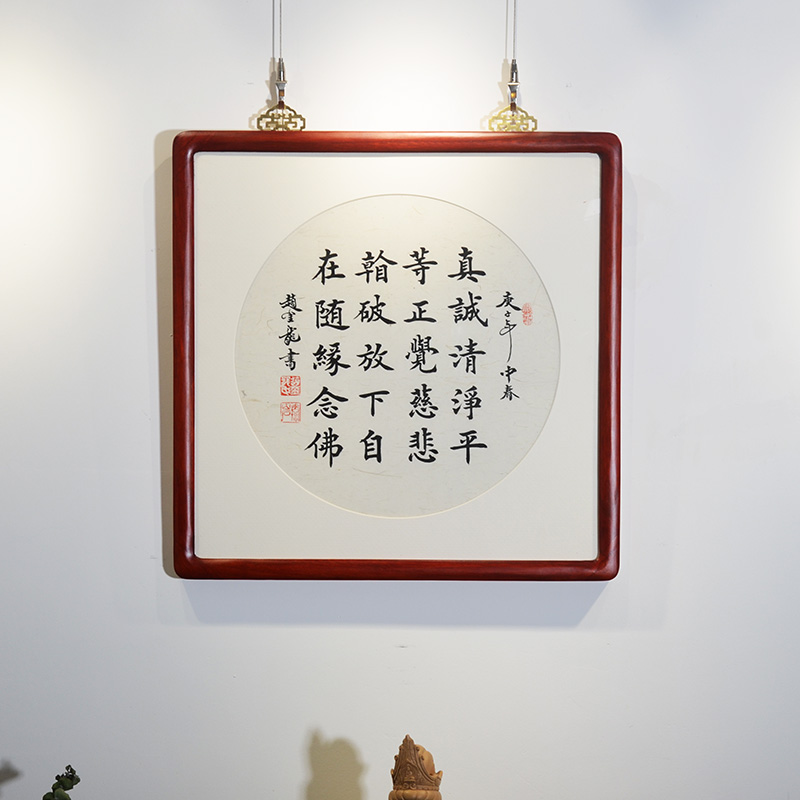 庚子年中春
真誠清淨平
等正覺慈悲
看破放下自
在随緣念佛
趙金龍書